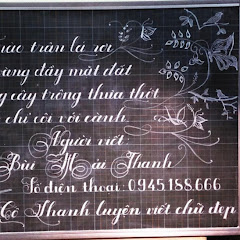 xao trăn lá rơi
vàng đầy mặt đất
cây trông thưa thớt
chỉ còi với cành
Người viết
Bùi Mai Thanh
Số điện thoại: 0945.188.666
Cô Thanh luyện viết chữ đẹp